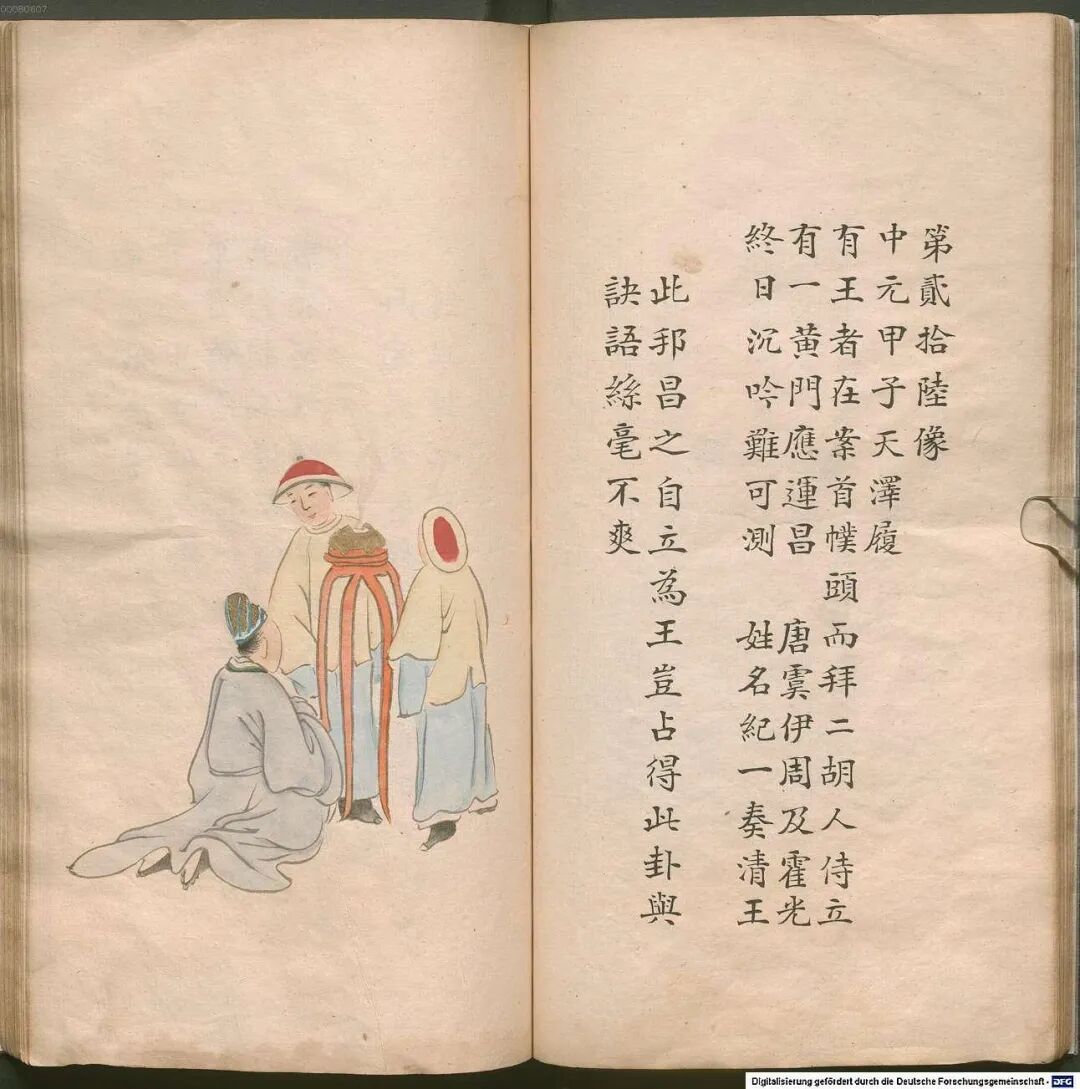 第貳拾陸像
中元甲子天澤履
有王者在案首幞頭而拜二胡人侍立
有一黄門應運昌 唐虞伊周及霍光
終日沉吟難可測 姓名紀一奏清王
此邦昌之自立為王豈占得此卦與
訣語絲毫不爽
00080607
Digitalisierung gefördert durch die Deutsche Forschungsgemeinschaft - DFG